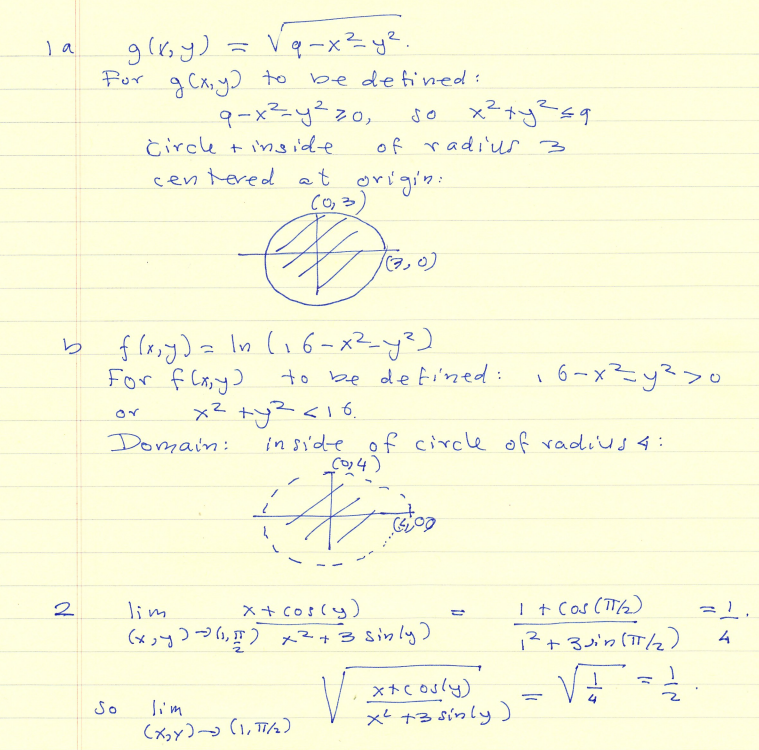 1a g(x,y) = √(9-x²-y²).
For g(x,y) to be defined:
9-x²-y² ≥0, so x²+y² ≤ 9
Circle + inside of radius 3
centered at origin:
(0,3)
(3,0)
b f(x,y) = ln (16-x²-y²)
For f(x,y) to be defined: 16-x²-y² > 0
or x² + y² < 16.
Domain: inside of circle of radius 4:
(0,4)
(4,0)
2 lim (x,y)→(1,π/2) (x+cos(y))/(x²+3 sin(y)) = (1+cos(π/2))/(1²+3sin(π/2)) = 1/4.
so lim (x,y)→(1,π/2) √((x+cos(y))/(x²+3 sin(y))) = √(1/4) = 1/2.